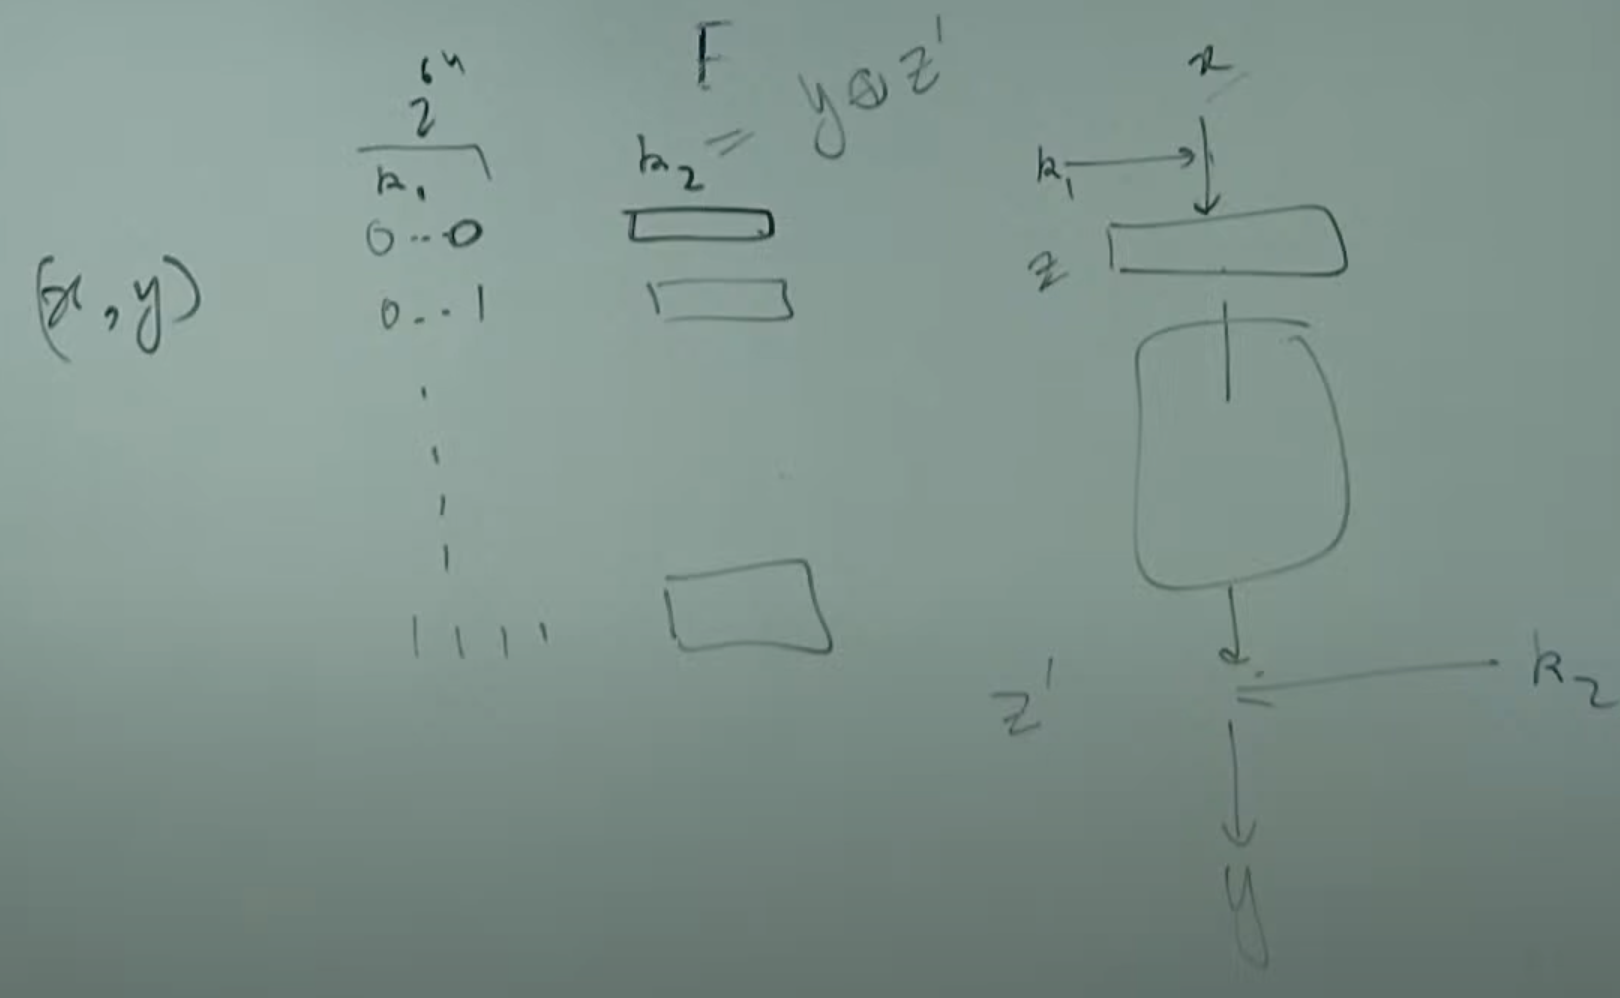 (x, y)
2^64
k₁
0...0
0...1
1 1 1 1
F
k₂ = y ⊕ z'
x
k₁
z
z'
k₂
y